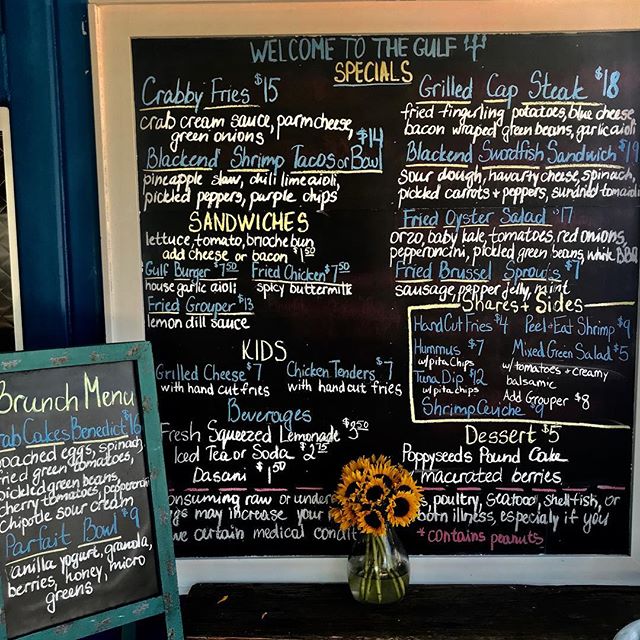 WELCOME TO THE GULF
SPECIALS
Crabby Fries $15
crab cream sauce, parm cheese,
green onions
Blackend Shrimp Tacos or Bowl $14
pineapple slaw, chili lime aioli,
pickled peppers, purple chips
SANDWICHES
lettuce, tomato, brioche bun
add cheese or bacon $1.50
Gulf Burger $7.50 Fried Chicken $7.50
house garlic aioli spicy buttermilk
Fried Grouper $13
lemon dill sauce
KIDS
Grilled Cheese $7 Chicken Tenders $7
with hand cut fries with hand cut fries
Beverages
Fresh Squeezed Lemonade $3.50
Iced Tea or Soda $2.75
Dasani $1.50
Grilled Cap Steak $18
fried fingurling potatoes, blue cheese,
bacon wraped green beans, garlic aioli
Blackend Swordfish Sandwich $19
sour dough, havarty cheese, spinach,
pickled carrots + peppers, sundried tomaioli
Fried Oyster Salad $17
orzo, baby kale, tomatoes, red onions,
pepperoncini, pickled green beans, white BBQ
Fried Brussel Sprouts $7
sausage, pepper jelly, mint
Shares + Sides
Hand Cut Fries $4 Peel + Eat Shrimp $9
Hummus $7 Mixed Green Salad $5
w/ pita chips w/ tomatoes + creamy
balsamic
Tuna Dip $12 Add Grouper $8
w/ pita chips
Shrimp Ceviche $9
Dessert $5
Poppyseeds Pound Cake
macurated berries
consuming raw or under poultry, seafood, shell-fish, or
may increase your born illness, especially if you
certain medical condit *contains peanuts
Brunch Menu
Crab Cakes Benedict $16
poached eggs, spinach,
fried green tomatoes,
pickled green beans,
cherry tomatoes,
chipotle sour cream
Parfait Bowl $9
vanilla yogurt, granola,
berries, honey, micro
greens